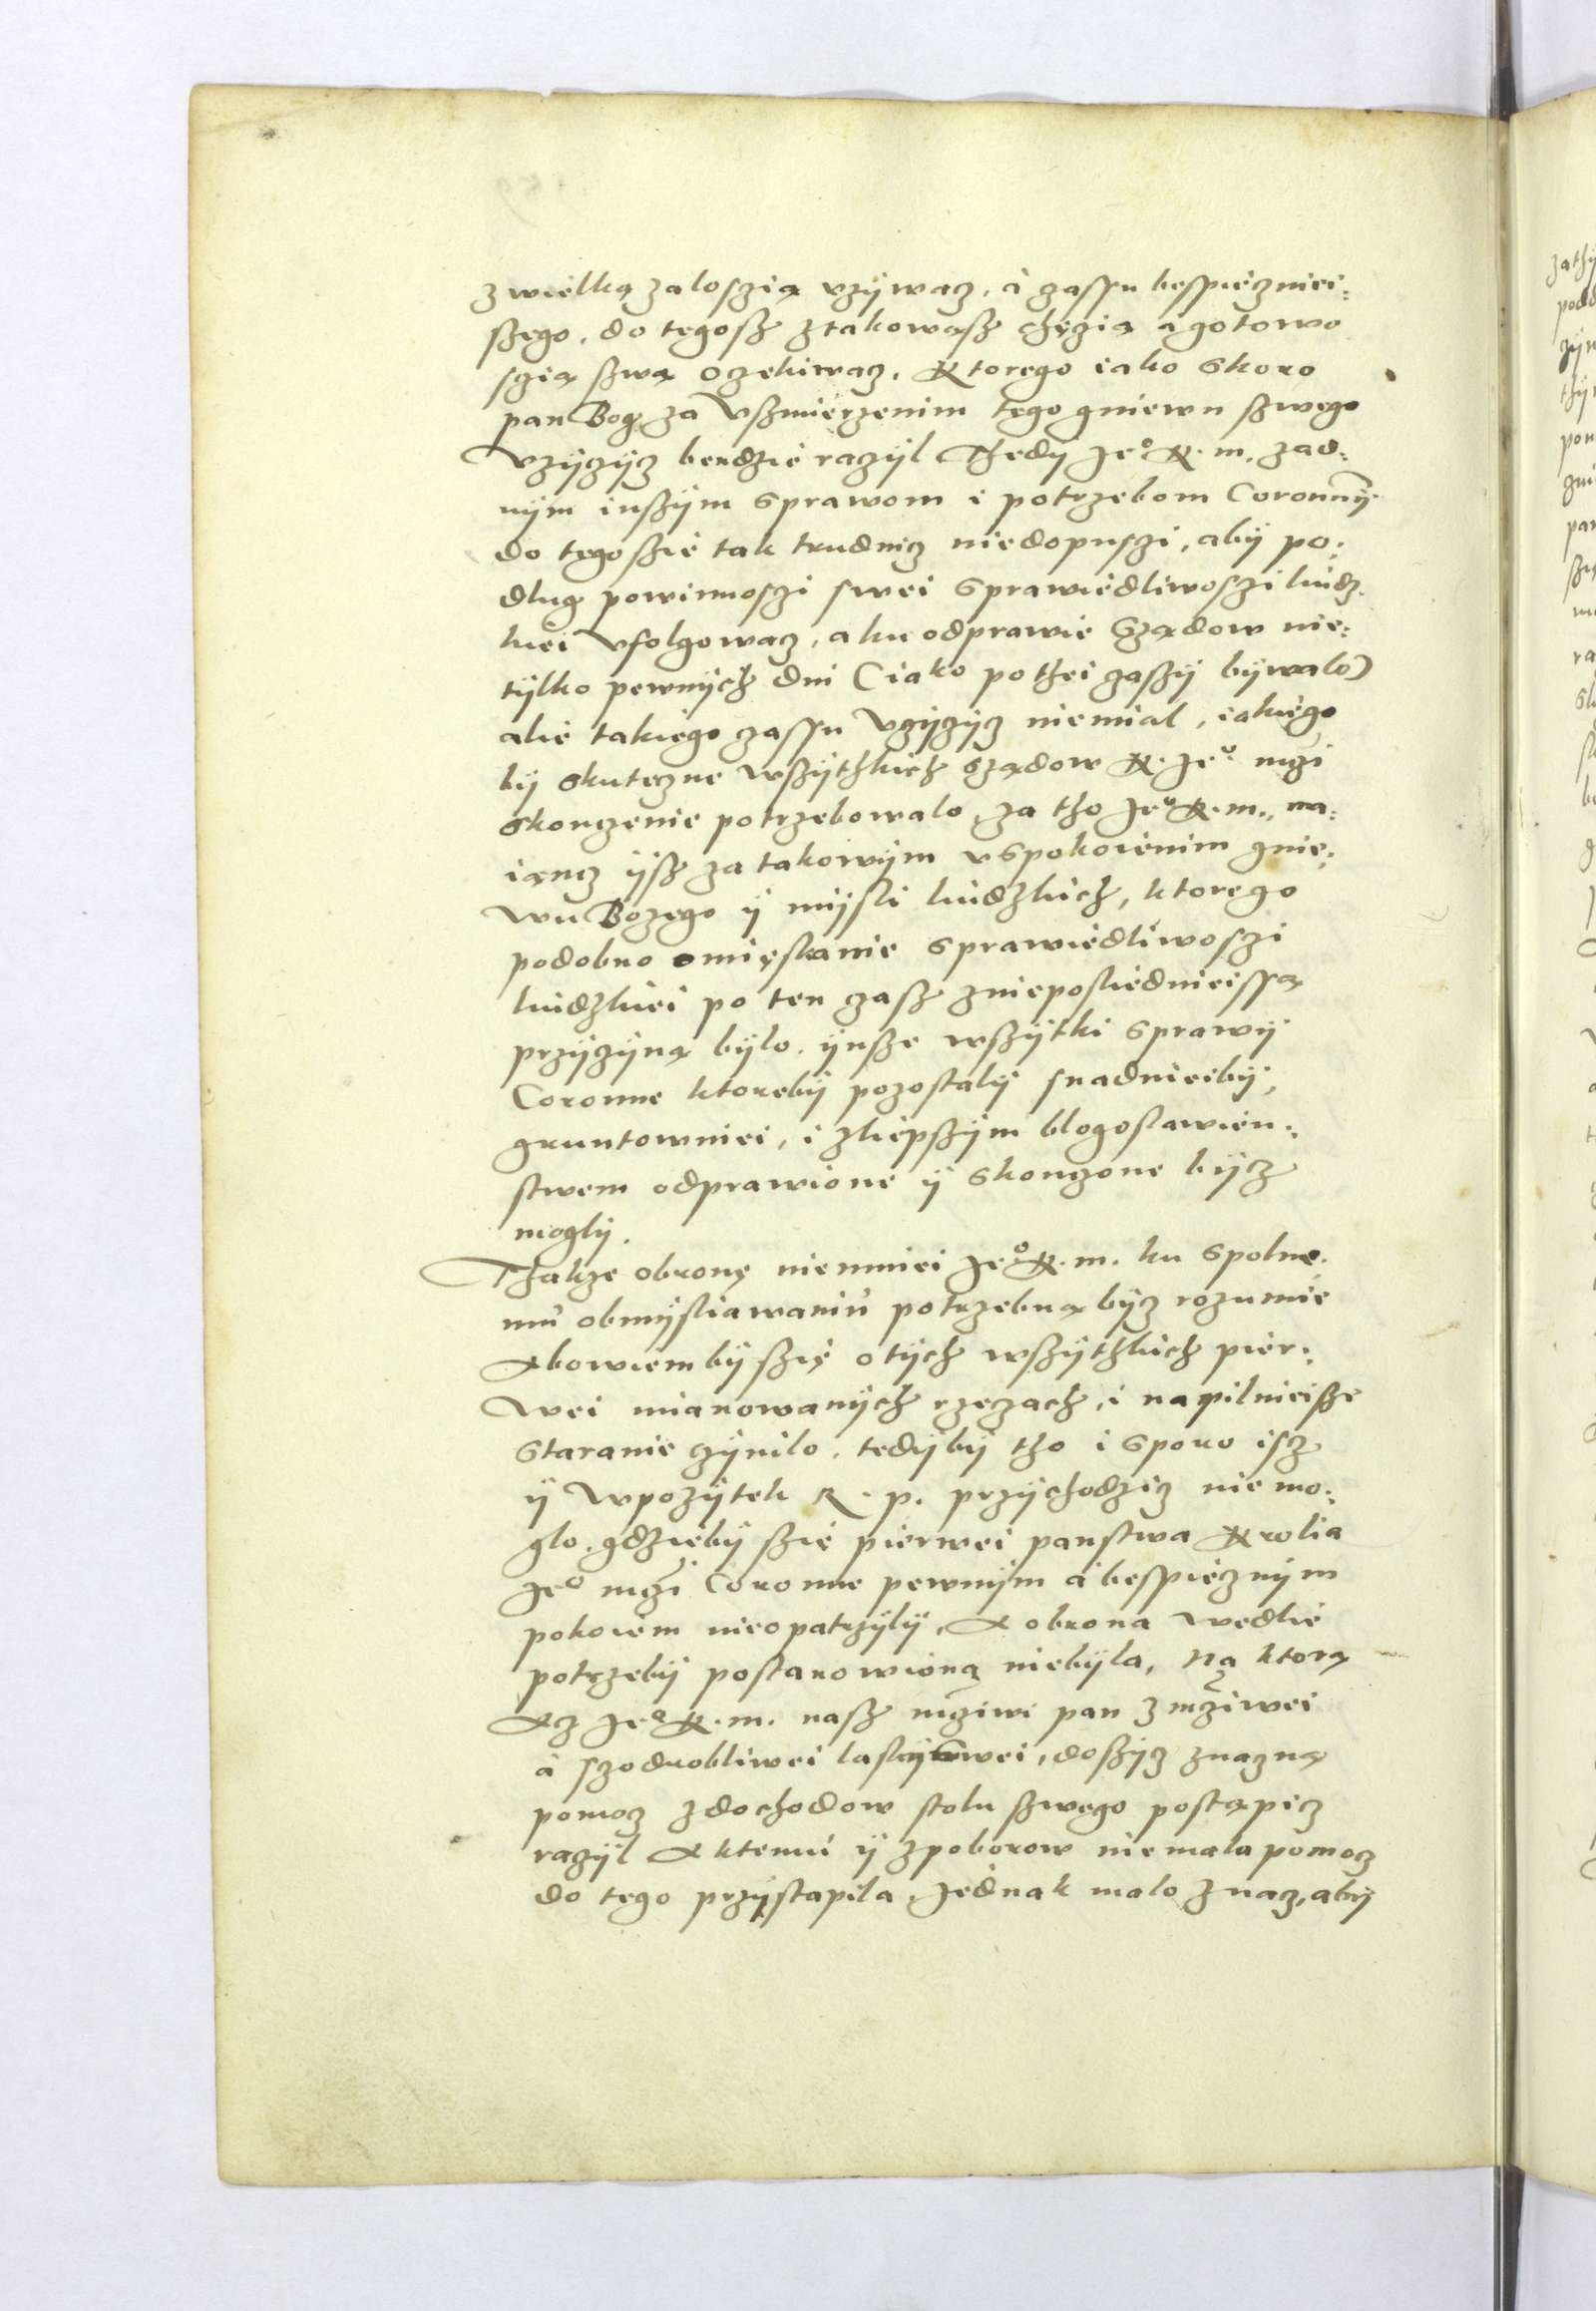 z wielką zaloszią vzÿwacz, à czassu bespiecznieÿ:
szego, do tegosz z takowąsz chęczią a gotowo
szią swą oczekiwacz. Ktorego iako skoro
pan Bog za Vszmierzenim tego gniewu szwego
Vzÿczÿcz bendzie raczÿl Thedÿ Jeº K. m. zad:
nÿm inszÿm sprawom i potrzebom Coronnÿ
do tego szie tak trudnicz niedopusczi, abÿ po:
dlug powinnosczi swei sprawiedliwosczi ludz
kiei Vfolgowacz, a ku odprawie Sządow nie:
tÿlko pewnÿch dni (iako po thei czassÿ bÿwalo)
alie takiego czassu Vzÿczÿcz niemial, iakiego
bÿ skuteczne wszÿthkich sządow K. Jeº mczi
skonczenie potrzebowalo, za tho Jeº K. m., ma:
iącz ÿsz za takowÿm vspokoienim gnie:
wu Bozego ÿ mÿsli liudzkich, ktorego
podobno omięskanie sprawiedliwosczi
liudzkiei po ten czasz znieposliednieissą
przÿczÿną bÿlo. ÿnsze wszÿtki sprawÿ
Coronne ktorebÿ pozostalÿ snadnieibÿ,
gruntowniei, i zliepszÿm blogoslawien:
stwem odprawione ÿ skonczone bÿcz
moglÿ.
Thakze obronę niemniei Jeº K. m. ku spolne
mu obmÿsliawaniu potrzebną bÿcz rozumie
Abowiem bÿ szię o tÿch wszÿthkich pier:
wei mianowanÿch rzeczach, i napilnieisze
staranie czÿnilo. tedÿbÿ tho i sporo iscz
ÿ w pozÿtek R. p. przÿchodzicz nie mo:
glo. gdziebÿ szie pierwei panstwa Krolia
Jeº mczi Coronne pewnÿm à bespiecznÿm
pokoiem nieopatrzÿlÿ, A obrona wedlie
potrzebÿ postanowiona niebÿla, Na ktorą
Acz Jeº K. m. nasz mcziwi pan z mcziwei
à sczodrobliwei laski swei, doszÿcz znaczną
pomocz z dochodow stolu szwego postąpicz
raczÿl A ktemu ÿ z poborow niemala pomocz
do tego przÿstapila, Jednak malo znacz, abÿ